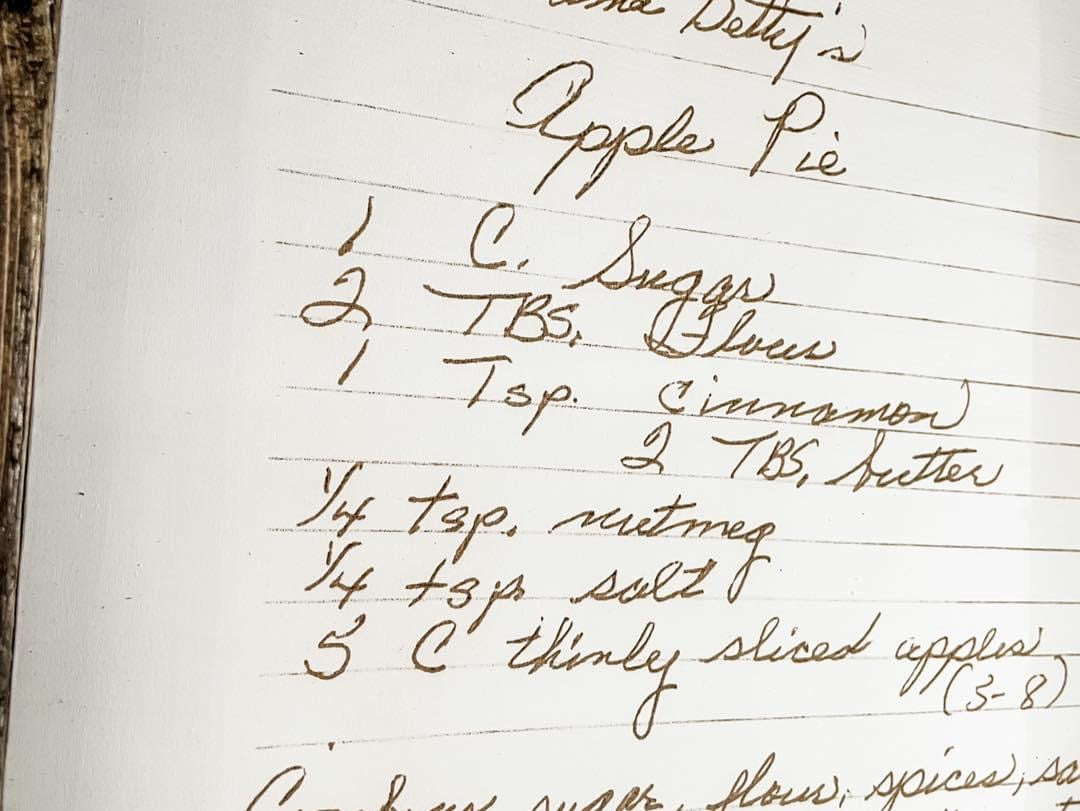 Betty's
Apple Pie
1 C. Sugar
2 TBS. Flour
1 Tsp. Cinnamon
2 TBS. butter
1/4 tsp. nutmeg
1/4 tsp. salt
5 C thinly sliced apples
(3-8)
sugar, flour, spices,